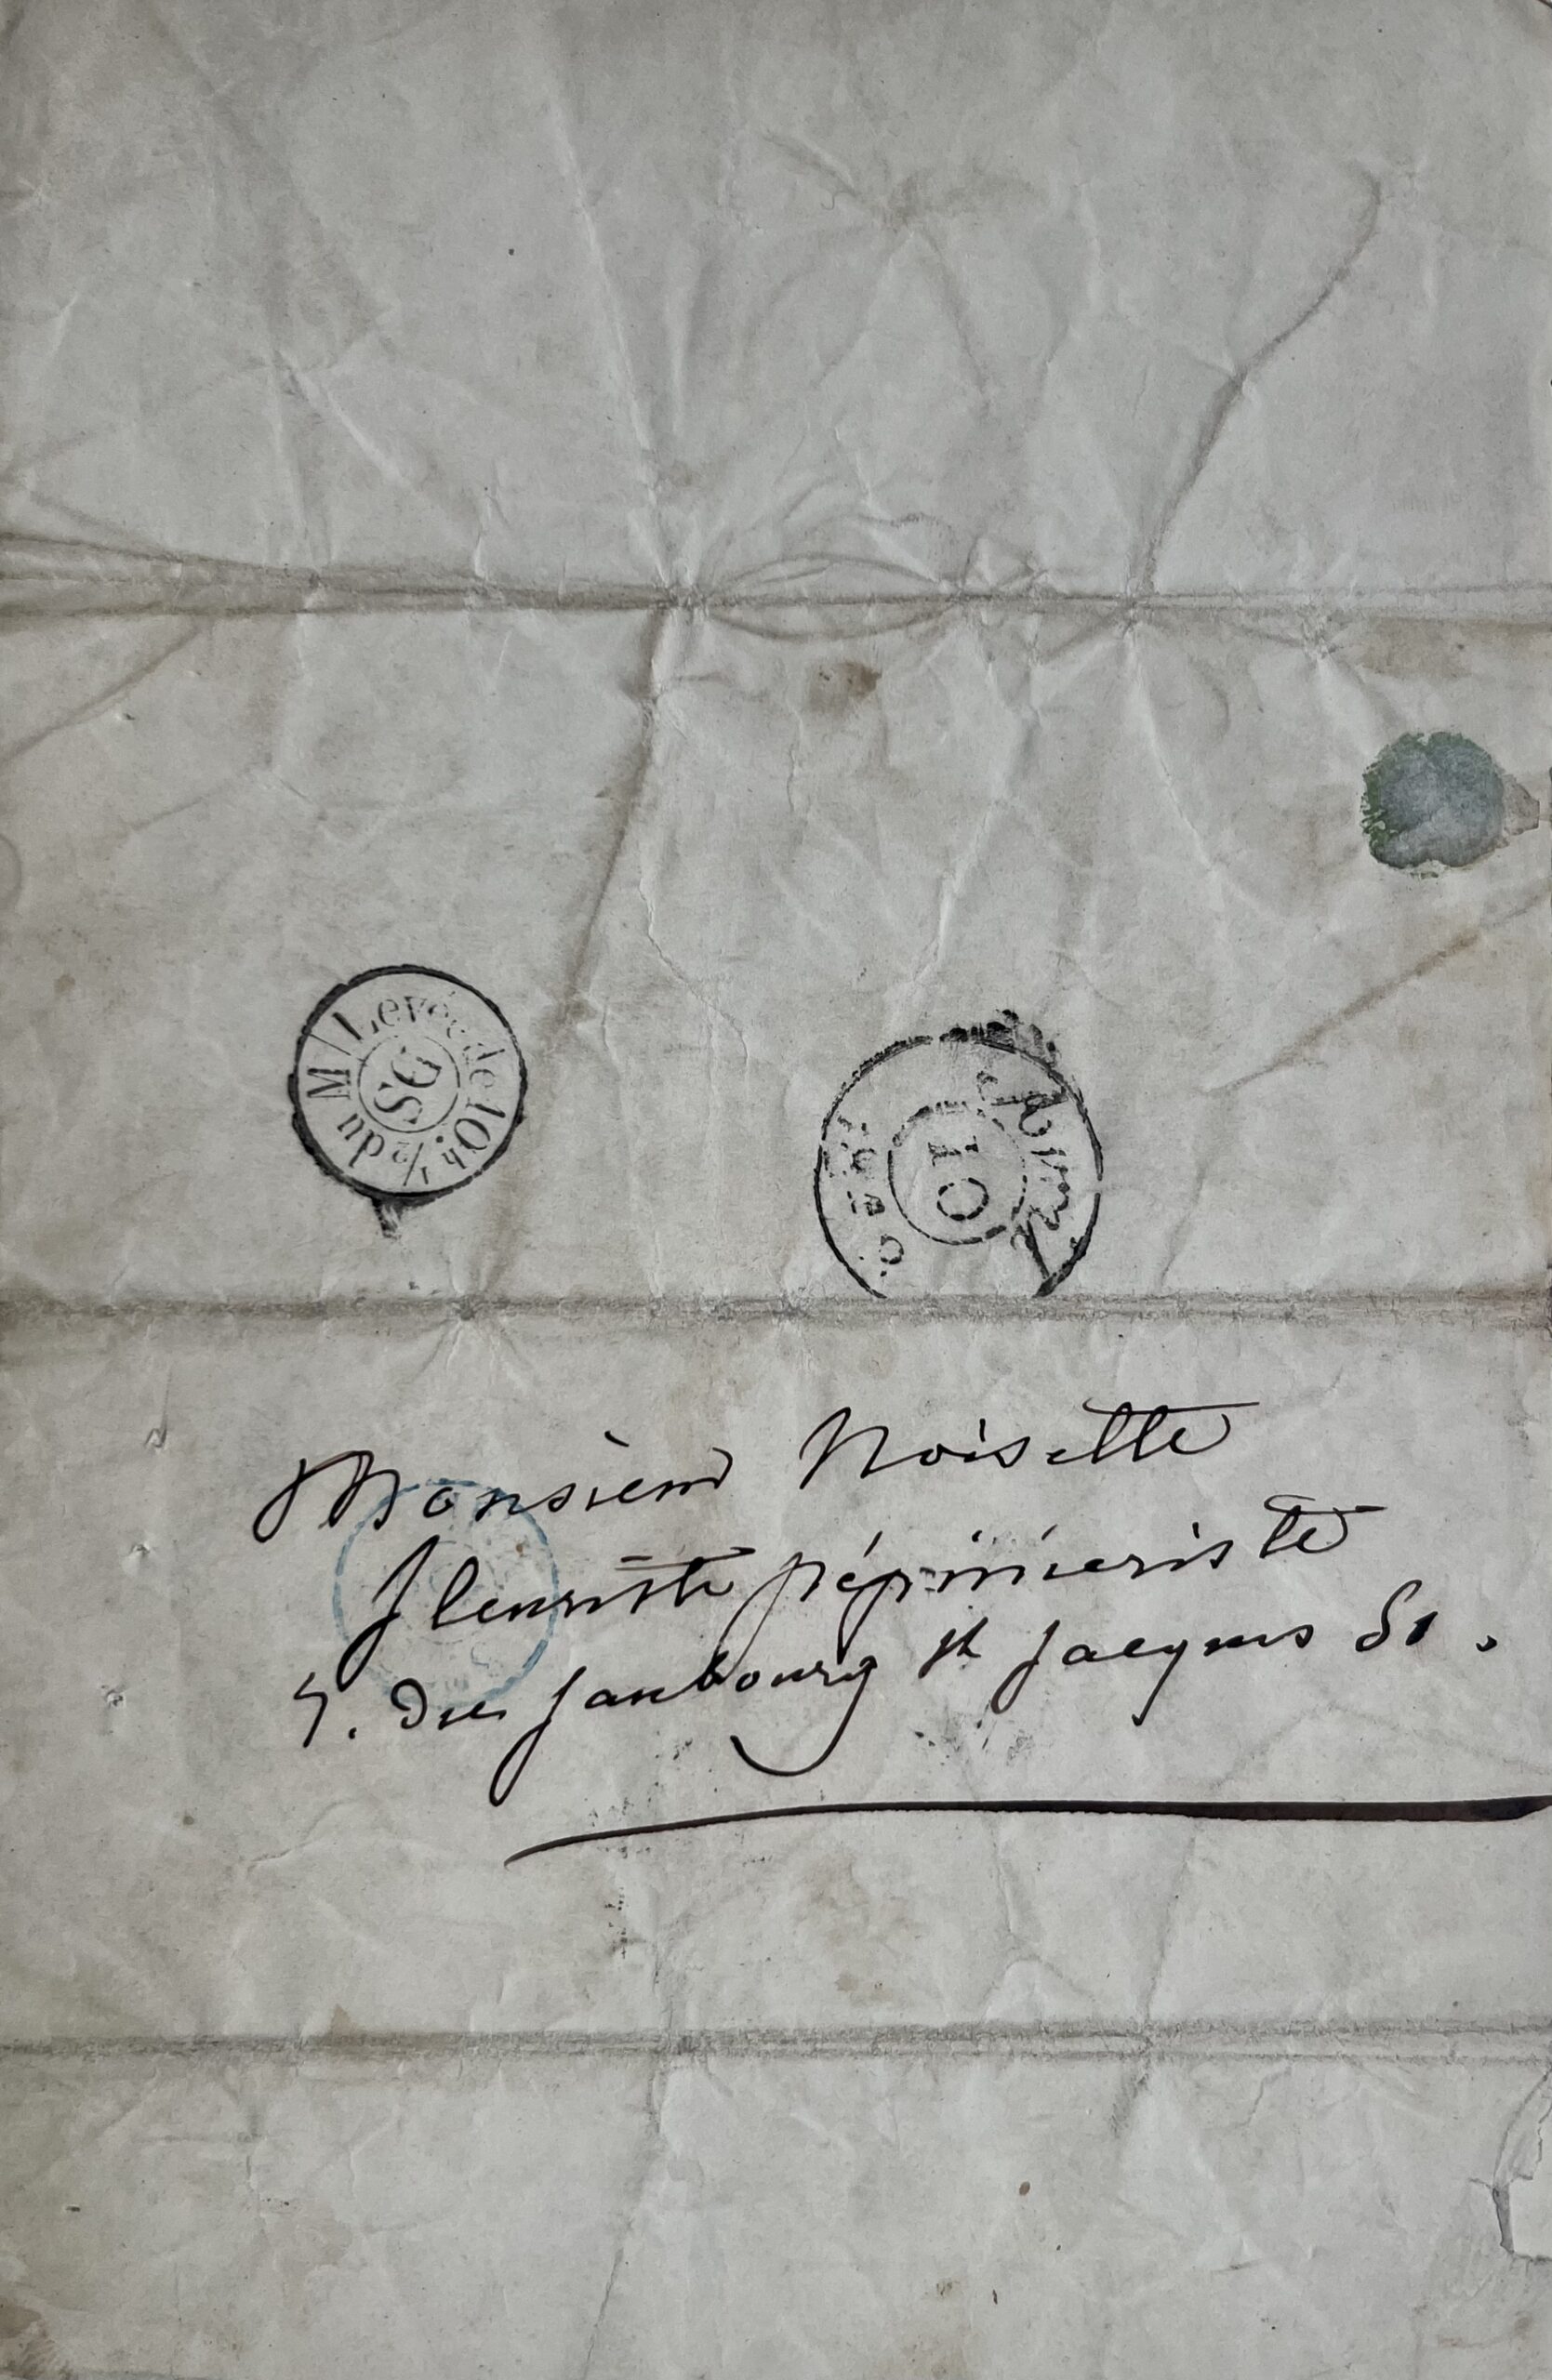 Levée de 10h ½ du M
SG
10
Monsieur Noisette
fleuriste pépinieriste
r. du faubourg St Jacques 51.